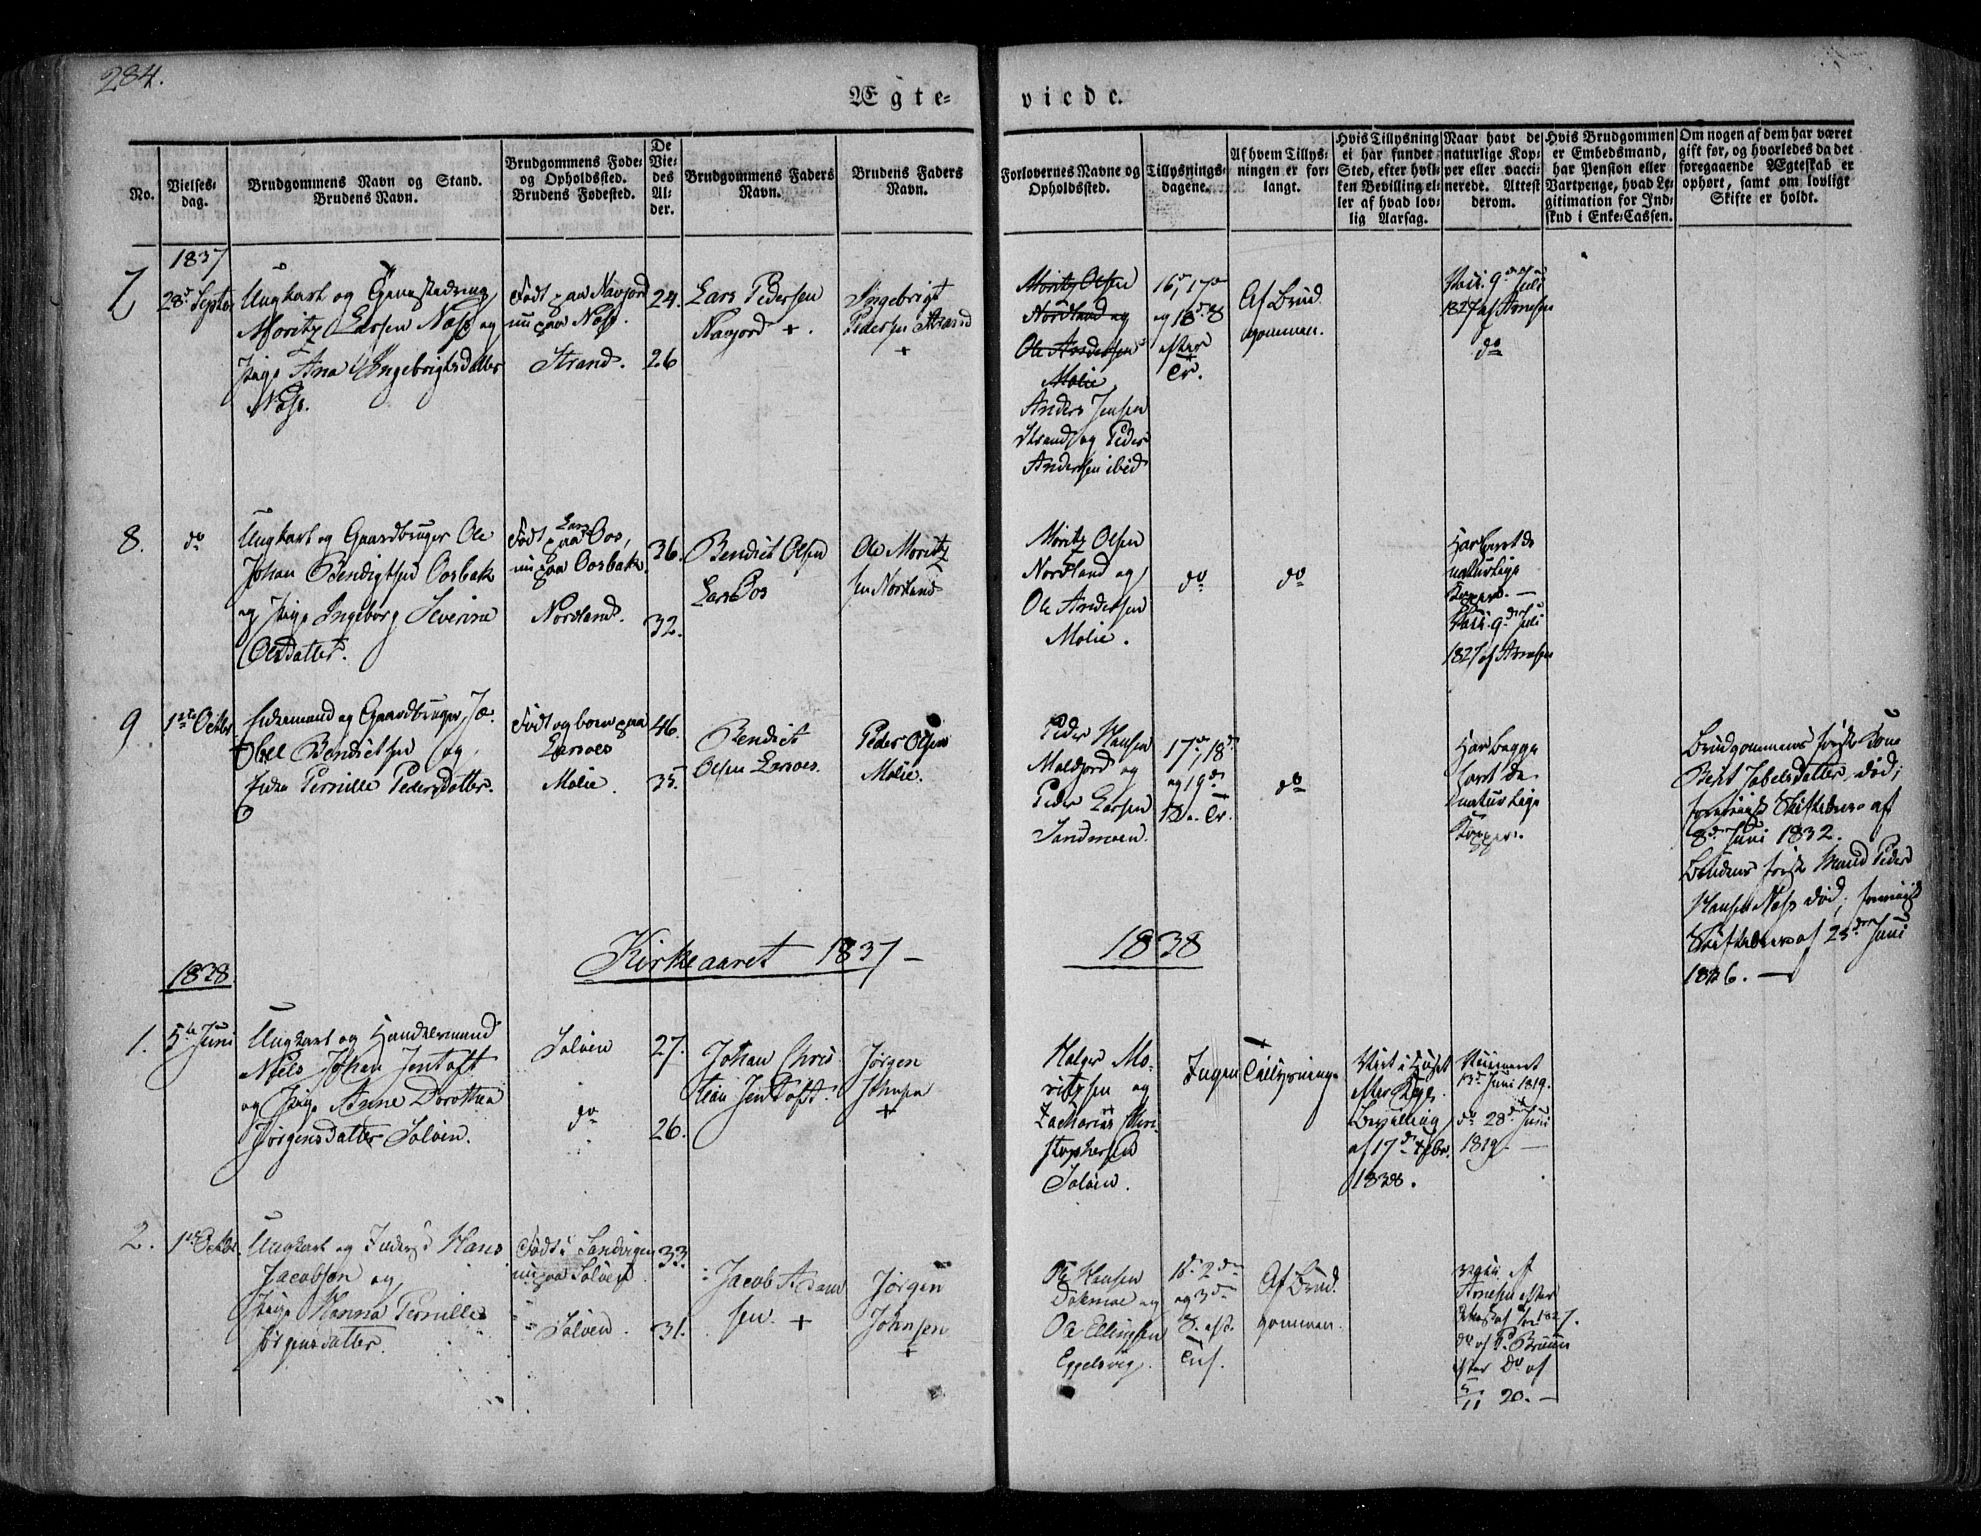 284.
Ægte=
viede.
No.
Vielses=
dag.
Brudgommens Navn og Stand.
Brudens Navn.
Brudgommens Føde=
og Opholdssted.
Brudens Fødested.
De
Vie=
des
Al=
der.
Brudgommens Faders
Navn.
Brudens Faders
Navn.
Forlovernes Navne og
Opholdssted.
Tillysnings=
dagene.
Af hvem Tillys=
ningen er for=
langt.
Hvis Tillysning
ei har fundet
Sted, efter hvil=
ken Bevilling el=
ler af hvad lov=
lig Aarsag.
Naar havt de
naturlige Kop=
per eller vacci=
nerede. Attest
derom.
Hvis Brudgommen
er Embedsmand,
har Pension eller
Vartpenge, hvad Le=
gitimation for Ind=
skud i Enke=Cassen.
Om nogen af dem har været
gift før, og hvorledes da det
foregaaende Ægteskab er
ophørt, samt om lovligt
Skifte er holdt.
1837
7
28de Septbr
Ungkarl og
Moritz Larsen Næss og
Pige Ana Ingebrigtsdatter
Næss.
Født paa Navjord
nu paa Næss.
Strand.
24.
26
Lars Pedersen
Navjord +.
Ingebrigt
Pedersen Strand
+
Moritz Olsen
Nordland og
Ole Andersen
Molie
Anders Jensen
Strand og Peder
Andersen ibid
16, 17de
og 18de S
efter
Tr.
Af Brud
gommen.
Vacc. 9de Juli
1827 af Arnesen
do
8.
do
Ungkarl og Gaardbruger Ole
Johan Bendigtsen Oosbak
og Pige Ingeborg Severine
Olsdatter.
Født paa Lars Oos,
nu paa Oosbak.
Nordland.
36.
32.
Bendict Olsen
Lars Oos
Ole Moritz
sen Norland
Moritz Olsen
Nordland og
Ole Andersen
Molie.
do
do
Har havt de
naturlige
Kopper. —
Vacc. 9de Juli
1827 af Arnesen
9.
1ste Octbr
Enkemand og Gaardbruger Ja=
bel Bendictsen og
Enke Pernille Pedersdatter.
Født og boer paa
Larsoes
Molie.
46.
35.
Bendict
Olsen Larsoes.
Peder Olsen
Molie.
Peder Hansen
Maldjord og
Peder Larsen
Sandmoen.
17de, 18de
og 19de
S. e. Tr.
do
Har begge
havt de
naturlige
Kopper.
Brudgommens første Kone
Berit Jabelsdatter, død;
foreviist Skiftebrev af
8de Juni 1832.
Brudens første Mand Peder
Hansen Næss død; foreviist
Skiftebrev af 25de Juni
1836. —
Kirkeaaret 1837 —
1838
1838
1.
5te Juni
Ungkarl og Handelsmand
Niels Johan Jentoft
og Pige Anne Dorothea
Jørgensdatter Solöen.
Solöen
do
27.
26.
Johan Chris
tian Jentoft.
Jørgen
Johnsen
+
Holger Mo=
ritzsen og
Zacharias Chri=
stophersen
Solöen.
Ingen
Tillysning.
Viet i Huset
efter Kgl.
Bevilling
af 17de Febr.
1838.
Vaccineret
13de Juni 1819.
do 28de Juni
1819. —
2.
1ste Octbr.
Ungkarl og Inderst Hans
Jacobsen og
Pige Hanna Pernille
Jørgensdatter.
Født i Sandvigen
nu paa Solöen
Solöen.
33.
31.
Jacob Adam
sen. +
Jørgen
Johnsen
+
Ole Hansen
Dokmoe og
Ole Ellingsen
Eggelsvig.
1ste 2den
og 3die
S. eft.
Trf.
Af Brud
gommen.
Vacc. af
Arnesen efter
Attest af 1827.
do af P. Bruun
efter do af
5/11 20. —